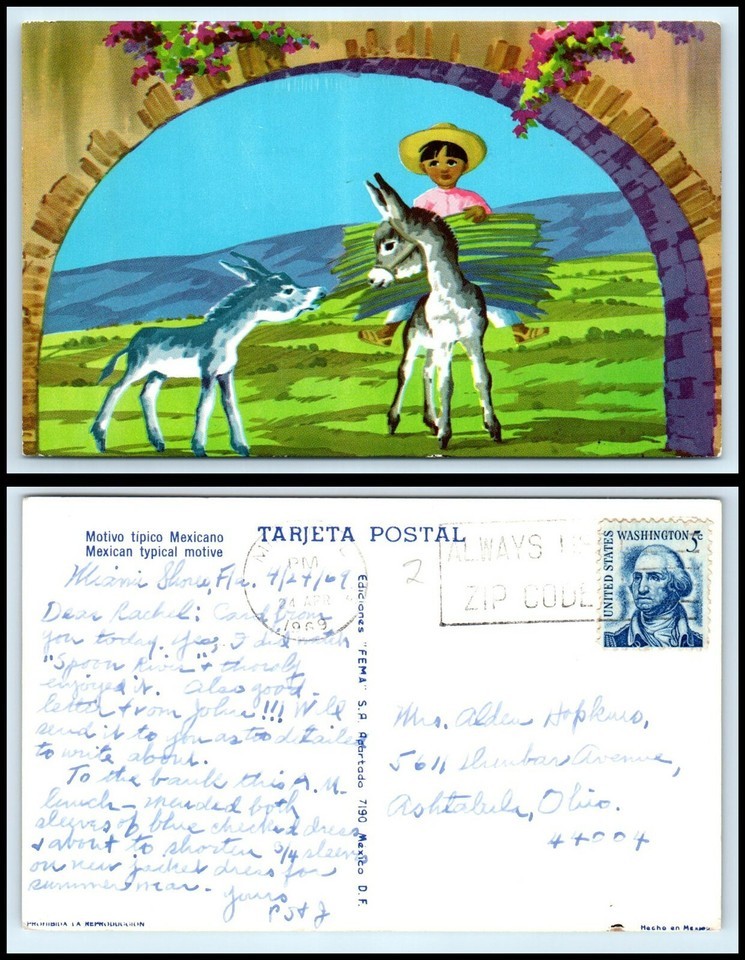 Motivo típico Mexicano
Mexican typical motive
TARJETA POSTAL
PM
24 APR
1969
2
ALWAYS USE
ZIP CODE
UNITED STATES
WASHINGTON 5c
Miami Shores, Fla. 4/24/69
Dear Rachel: Card from
you today. Yes, I did watch
"Spoon River" & thoroly
enjoyed it. Also good
letter from John!!! Will
send it to you as too detailed
to write about.
To the bank this A.M.
lunch - mended both
sleeves of blue checked dress
& about to shorten 3/4 sleeves
on new jacket dress for
summer wear.
Yours
Ediciones "FEMA" S.A. Apartado 7190 Mexico D.F.
Mrs. Alden Hopkins,
5611 Dunbar Avenue,
Ashtabula, Ohio.
44004
PROHIBIDA LA REPRODUCCION
Hecho en Mexico